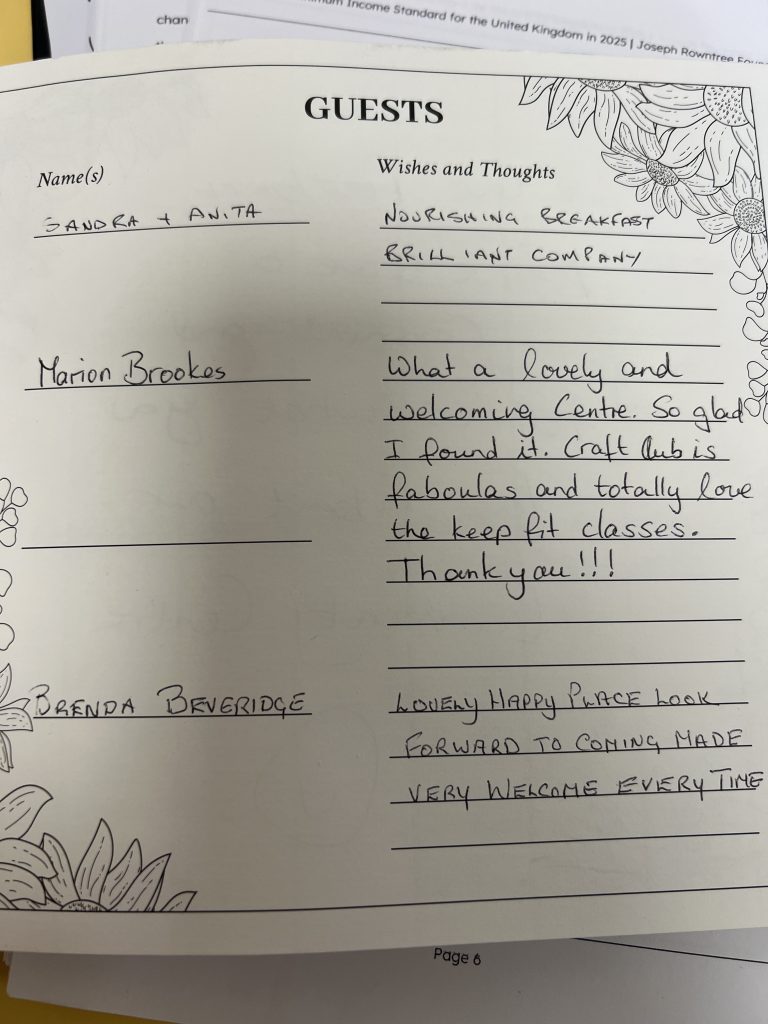 chan
Income Standard for the United Kingdom in 2025 | Joseph Rowntree
GUESTS
Name(s)
Wishes and Thoughts
SANDRA + ANITA
NOURISHING BREAKFAST
BRILLIANT COMPANY
Marion Brookes
What a lovely and
welcoming Centre. So glad
I found it. Craft Club is
faboulas and totally love
the keep fit classes.
Thank you!!!
BRENDA BEVERIDGE
LOVELY HAPPY PLACE LOOK
FORWARD TO COMING MADE
VERY WELCOME EVERY TIME
Page 6